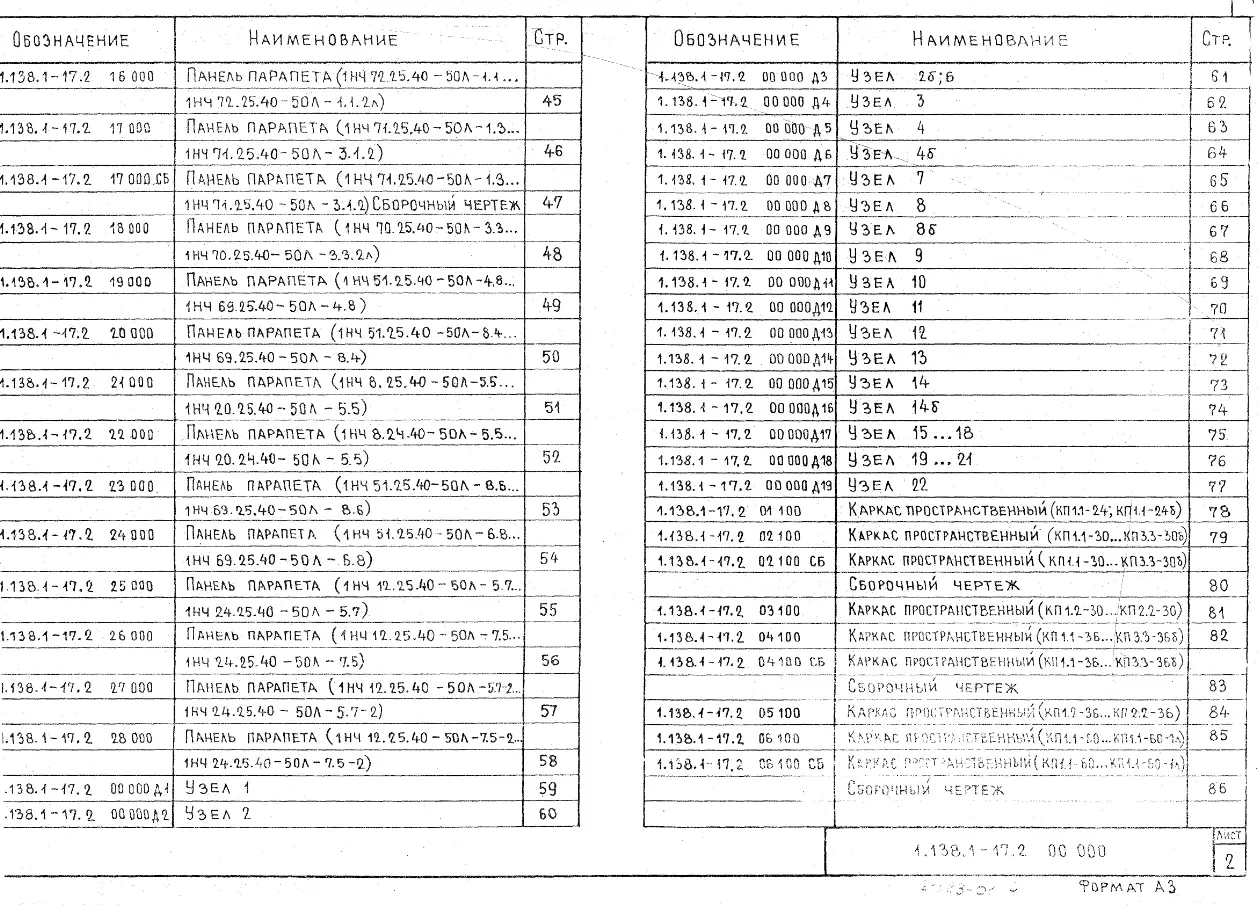 Обозначение Наименование Стр.
1.138.1-17.2 16 000 Панель парапета (1НЧ 72.25.40-50Л-1.1...
1НЧ 72.25.40-50Л-1.1.2л) 45
1.138.1-17.2 17 000 Панель парапета (1НЧ 71.25.40-50Л-1.3...
1НЧ 71.25.40-50Л-3.1.2) 46
1.138.1-17.2 17 000 СБ Панель парапета (1НЧ 71.25.40-50Л-1.3...
1НЧ 71.25.40-50Л-3.1.2) Сборочный чертеж 47
1.138.1-17.2 18 000 Панель парапета (1НЧ 70.25.40-50Л-3.3...
1НЧ 70.25.40-50Л-3.3.2л) 48
1.138.1-17.2 19 000 Панель парапета (1НЧ 51.25.40-50Л-4.8...
1НЧ 69.25.40-50Л-4.8) 49
1.138.1-17.2 20 000 Панель парапета (1НЧ 51.25.40-50Л-8.4...
1НЧ 69.25.40-50Л-8.4) 50
1.138.1-17.2 21 000 Панель парапета (1НЧ 8.25.40-50Л-5.5...
1НЧ 20.25.40-50Л-5.5) 51
1.138.1-17.2 22 000 Панель парапета (1НЧ 8.24.40-50Л-5.5...
1НЧ 20.24.40-50Л-5.5) 52
1.138.1-17.2 23 000 Панель парапета (1НЧ 51.25.40-50Л-8.6...
1НЧ 69.25.40-50Л-8.6) 53
1.138.1-17.2 24 000 Панель парапета (1НЧ 51.25.40-50Л-6.8...
1НЧ 69.25.40-50Л-6.8) 54
1.138.1-17.2 25 000 Панель парапета (1НЧ 12.25.40-50Л-5.7...
1НЧ 24.25.40-50Л-5.7) 55
1.138.1-17.2 26 000 Панель парапета (1НЧ 12.25.40-50Л-7.5...
1НЧ 24.25.40-50Л-7.5) 56
1.138.1-17.2 27 000 Панель парапета (1НЧ 12.25.40-50Л-5.7-2...
1НЧ 24.25.40-50Л-5.7-2) 57
1.138.1-17.2 28 000 Панель парапета (1НЧ 12.25.40-50Л-7.5-2...
1НЧ 24.25.40-50Л-7.5-2) 58
.138.1-17.2 00 000 Д1 Узел 1 59
.138.1-17.2 00 000 Д2 Узел 2 60
Обозначение Наименование Стр.
1.138.1-17.2 00 000 Д3 Узел 2б; 6 61
1.138.1-17.2 00 000 Д4 Узел 3 62
1.138.1-17.2 00 000 Д5 Узел 4 63
1.138.1-17.2 00 000 Д6 Узел 4б 64
1.138.1-17.2 00 000 Д7 Узел 7 65
1.138.1-17.2 00 000 Д8 Узел 8 66
1.138.1-17.2 00 000 Д9 Узел 8б 67
1.138.1-17.2 00 000 Д10 Узел 9 68
1.138.1-17.2 00 000 Д11 Узел 10 69
1.138.1-17.2 00 000 Д12 Узел 11 70
1.138.1-17.2 00 000 Д13 Узел 12 71
1.138.1-17.2 00 000 Д14 Узел 13 72
1.138.1-17.2 00 000 Д15 Узел 14 73
1.138.1-17.2 00 000 Д16 Узел 14б 74
1.138.1-17.2 00 000 Д17 Узел 15...18 75
1.138.1-17.2 00 000 Д18 Узел 19...21 76
1.138.1-17.2 00 000 Д19 Узел 22 77
1.138.1-17.2 01 100 Каркас пространственный (КП1.1-24; КП1.1-24б) 78
1.138.1-17.2 02 100 Каркас пространственный (КП1.1-30...КП3.3-30б 79
1.138.1-17.2 02 100 СБ Каркас пространственный (КП1.1-30...КП3.3-30б)
Сборочный чертеж 80
1.138.1-17.2 03 100 Каркас пространственный (КП1.2-30...КП2.2-30) 81
1.138.1-17.2 04 100 Каркас пространственный (КП1.1-36...КП3.3-36б) 82
1.138.1-17.2 04 100 СБ Каркас пространственный (КП1.1-36...КП3.3-36б)
Сборочный чертеж 83
1.138.1-17.2 05 100 Каркас пространственный (КП1.2-36...КП2.2-36) 84
1.138.1-17.2 06 100 Каркас пространственный (КП1.1-60...КП1.1-60-1л) 85
1.138.1-17.2 06 100 СБ Каркас пространственный (КП1.1-60...КП1.1-60-1л)
Сборочный чертеж 86
1.138.1-17.2 00 000
Лист
2
Формат А3